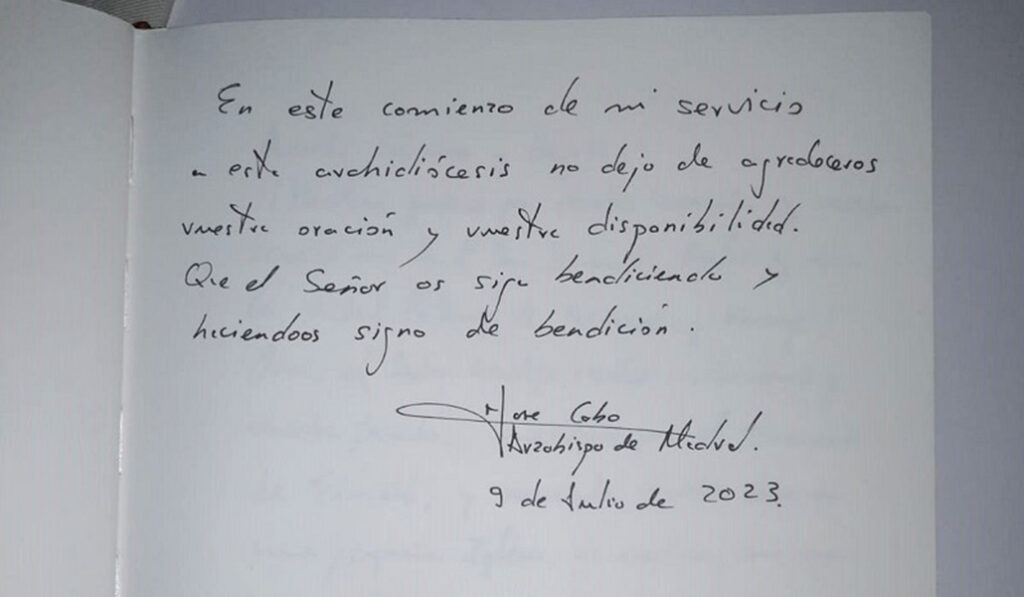 En este comienzo de mi servicio
a esta archidiócesis no dejo de agradeceros
vuestra oración y vuestra disponibilidad.
Que el Señor os siga bendiciendo y
haciendoos signo de bendición.
Jose Cobo
Arzobispo de Madrid.
9 de Julio de 2023.